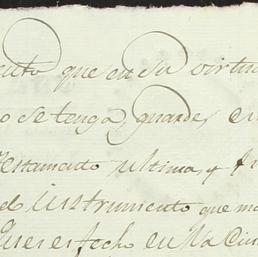 ento que en su virtu
o se tenga, guarde, e
Testamento ultima, y
do instrumento que m
es fecho en